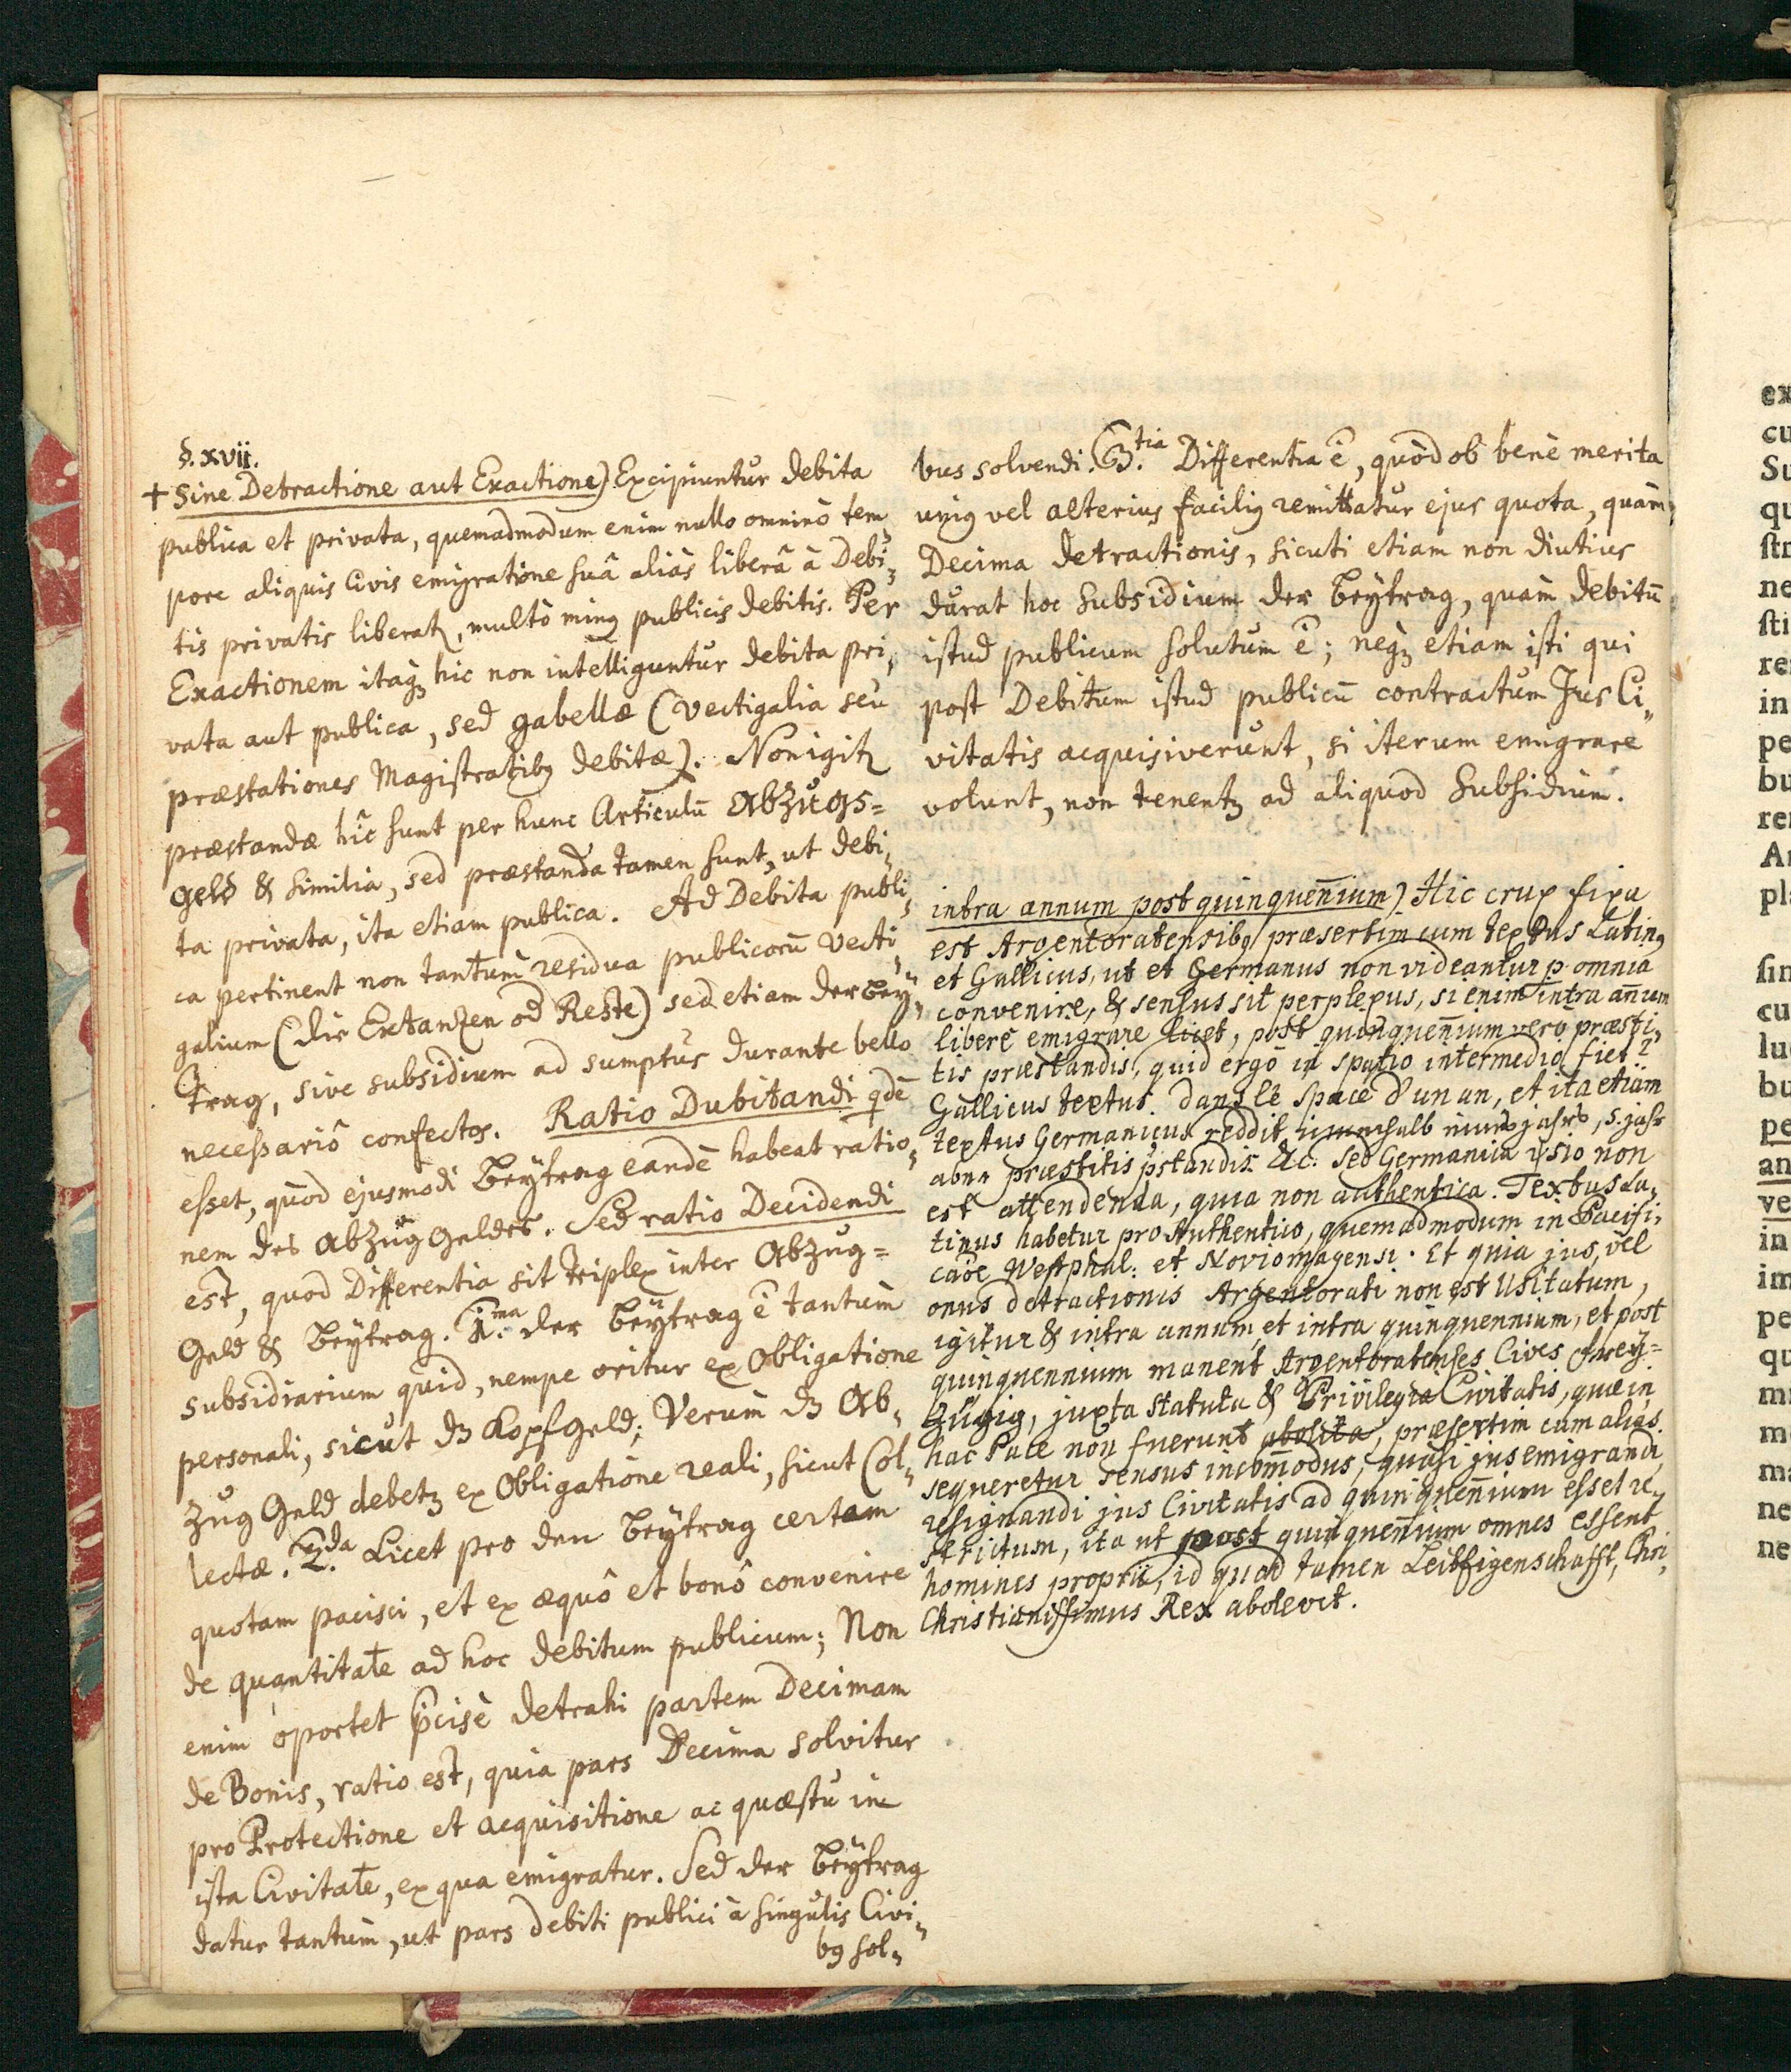 §. xvii.
+ Sine Detractione aut Exactione) Excipiuntur debita
publica et privata, quemadmodum enim nullo omninò tem
pore aliquis Civis emigratione suâ aliàs liberâ à Debi„
tis privatis liberatꝛ, multò minꝯ publicis debitis. Per
Exactionem itaqꝫ hic non intelliguntur debita pri„
vata aut publica, sed gabellæ (vectigalia seu
præstationes Magistratibꝯ debitæ). Non igitꝛ
præstandæ hîc sunt per hunc Articulū Abzugs=
geld & similia, sed præstanda tamen sunt, ut debi„
ta privata, ita etiam publica. Ad Debita publi„
ca pertinent non tantùm residua publicorū vecti„
galium (die Extanzen od Reste) sed etiam der Bey„
trag, sive subsidium ad sumptus durante bello
necessariò confectos. Ratio Dubitandi qdē
esset, quòd ejusmodi Beytrag eandē habeat ratio„
nem des Abzug Geldes. Sed ratio Decidendi
est, quod Differentia sit triplex inter Abzug=
Geld & Beytrag. 1.ma der Beytrag ē tantùm
subsidiarium quid, nempe oritur ex Obligatione
personali, sicut dz Kopfgeld; Verùm dz Ab„
zug Geld debetꝫ ex Obligatione reali, sicut Col„
lectæ. 2.da Licet pro den Beytrag certam
quotam pacisci, et ex æquô et bonô convenire
de quantitate ad hoc debitum publicum; Non
enim oportet p̄cisè detrahi partem Decimam
de Bonis, ratio est, quia pars Decima solvitur
pro Protectione et acquisitione ac quæstu in
ista Civitate, ex qua emigratur. Sed der Beytrag
datur tantùm, ut pars debiti publici à singulis Civi„
bꝯ sol„
bus solvendi. 3.tia Differentia ē, quòd ob benè merita
uniꝯ vel alteriuꝯ faciliꝯ remittatur ejus quota, quàm
Decima detractionis, sicuti etiam non diutius
durat hoc subsidium der Beytrag, quàm debitū
istud publicum solutum ē; neqꝫ etiam isti qui
post Debitum istud publicū contractum Jus Ci„
vitatis acquisiverunt, si iterum emigrare
volunt, non tenentꝫ ad aliquod Subsidium.
intra annum post quinquen̄ium) Hic crux fixa
est Argentoratensibꝯ præsertim cum textus Latinꝯ
et Gallicus, ut et Germanus non videantur p omnia
convenire, & sensus sit perplexus, si enim intra an̄um
liberè emigrare licet, post quinquen̄ium verò præsti„
tis præstandis, quid ergò in spatio intermedio fiet?
Gallicus textus. dans le space d'un an, et ita etiam
textus Germanicus reddit innerhalb eines jahrs, 5. jahr
aber præstitis p̄standis &c. Sed Germanica v̄sio non
est attendenda, quia non authentica. Textus La„
tinus habetur pro Authentico, quemadmodum in Pacifi„
caōe Westphal: et Noviomagensi. Et quia jus, vel
onus detractionis Argentorati non est Usitatum,
igitur & intra annum, et intra quinquennium, et post
quinquennium manent Argentoratenses Cives frey=
zügig, juxta Statuta & Privilegia Civitatis, quæ in
hac Pace non fuerunt abolita, præsertim cum aliàs
sequeretur sensus incom̄odus, quasi jus emigrandi,
resignandi jus Civitatis ad quinquen̄ium esset re„
strictum, ita ut post quinquen̄ium omnes essent
homines proprii, id quod tamen Leibeigenschafft, Chri„
Christianissimus Rex abolevit.
ex
cu
Su
qu
str
ne
sti
re
in
pe
bu
re
Ar
pl
sin
cu
lu
bu
pe
an
ve
in
im
pe
qu
mi
m
ma
ne
ne